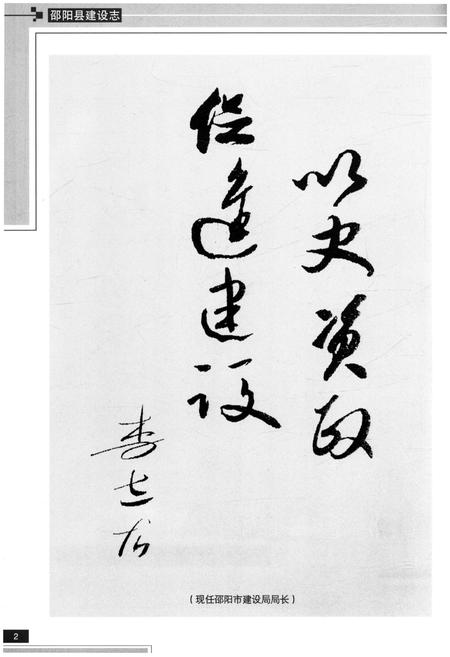 邵阳县建设志
以史资政
促進建设
李志友
（现任邵阳市建设局局长）
2